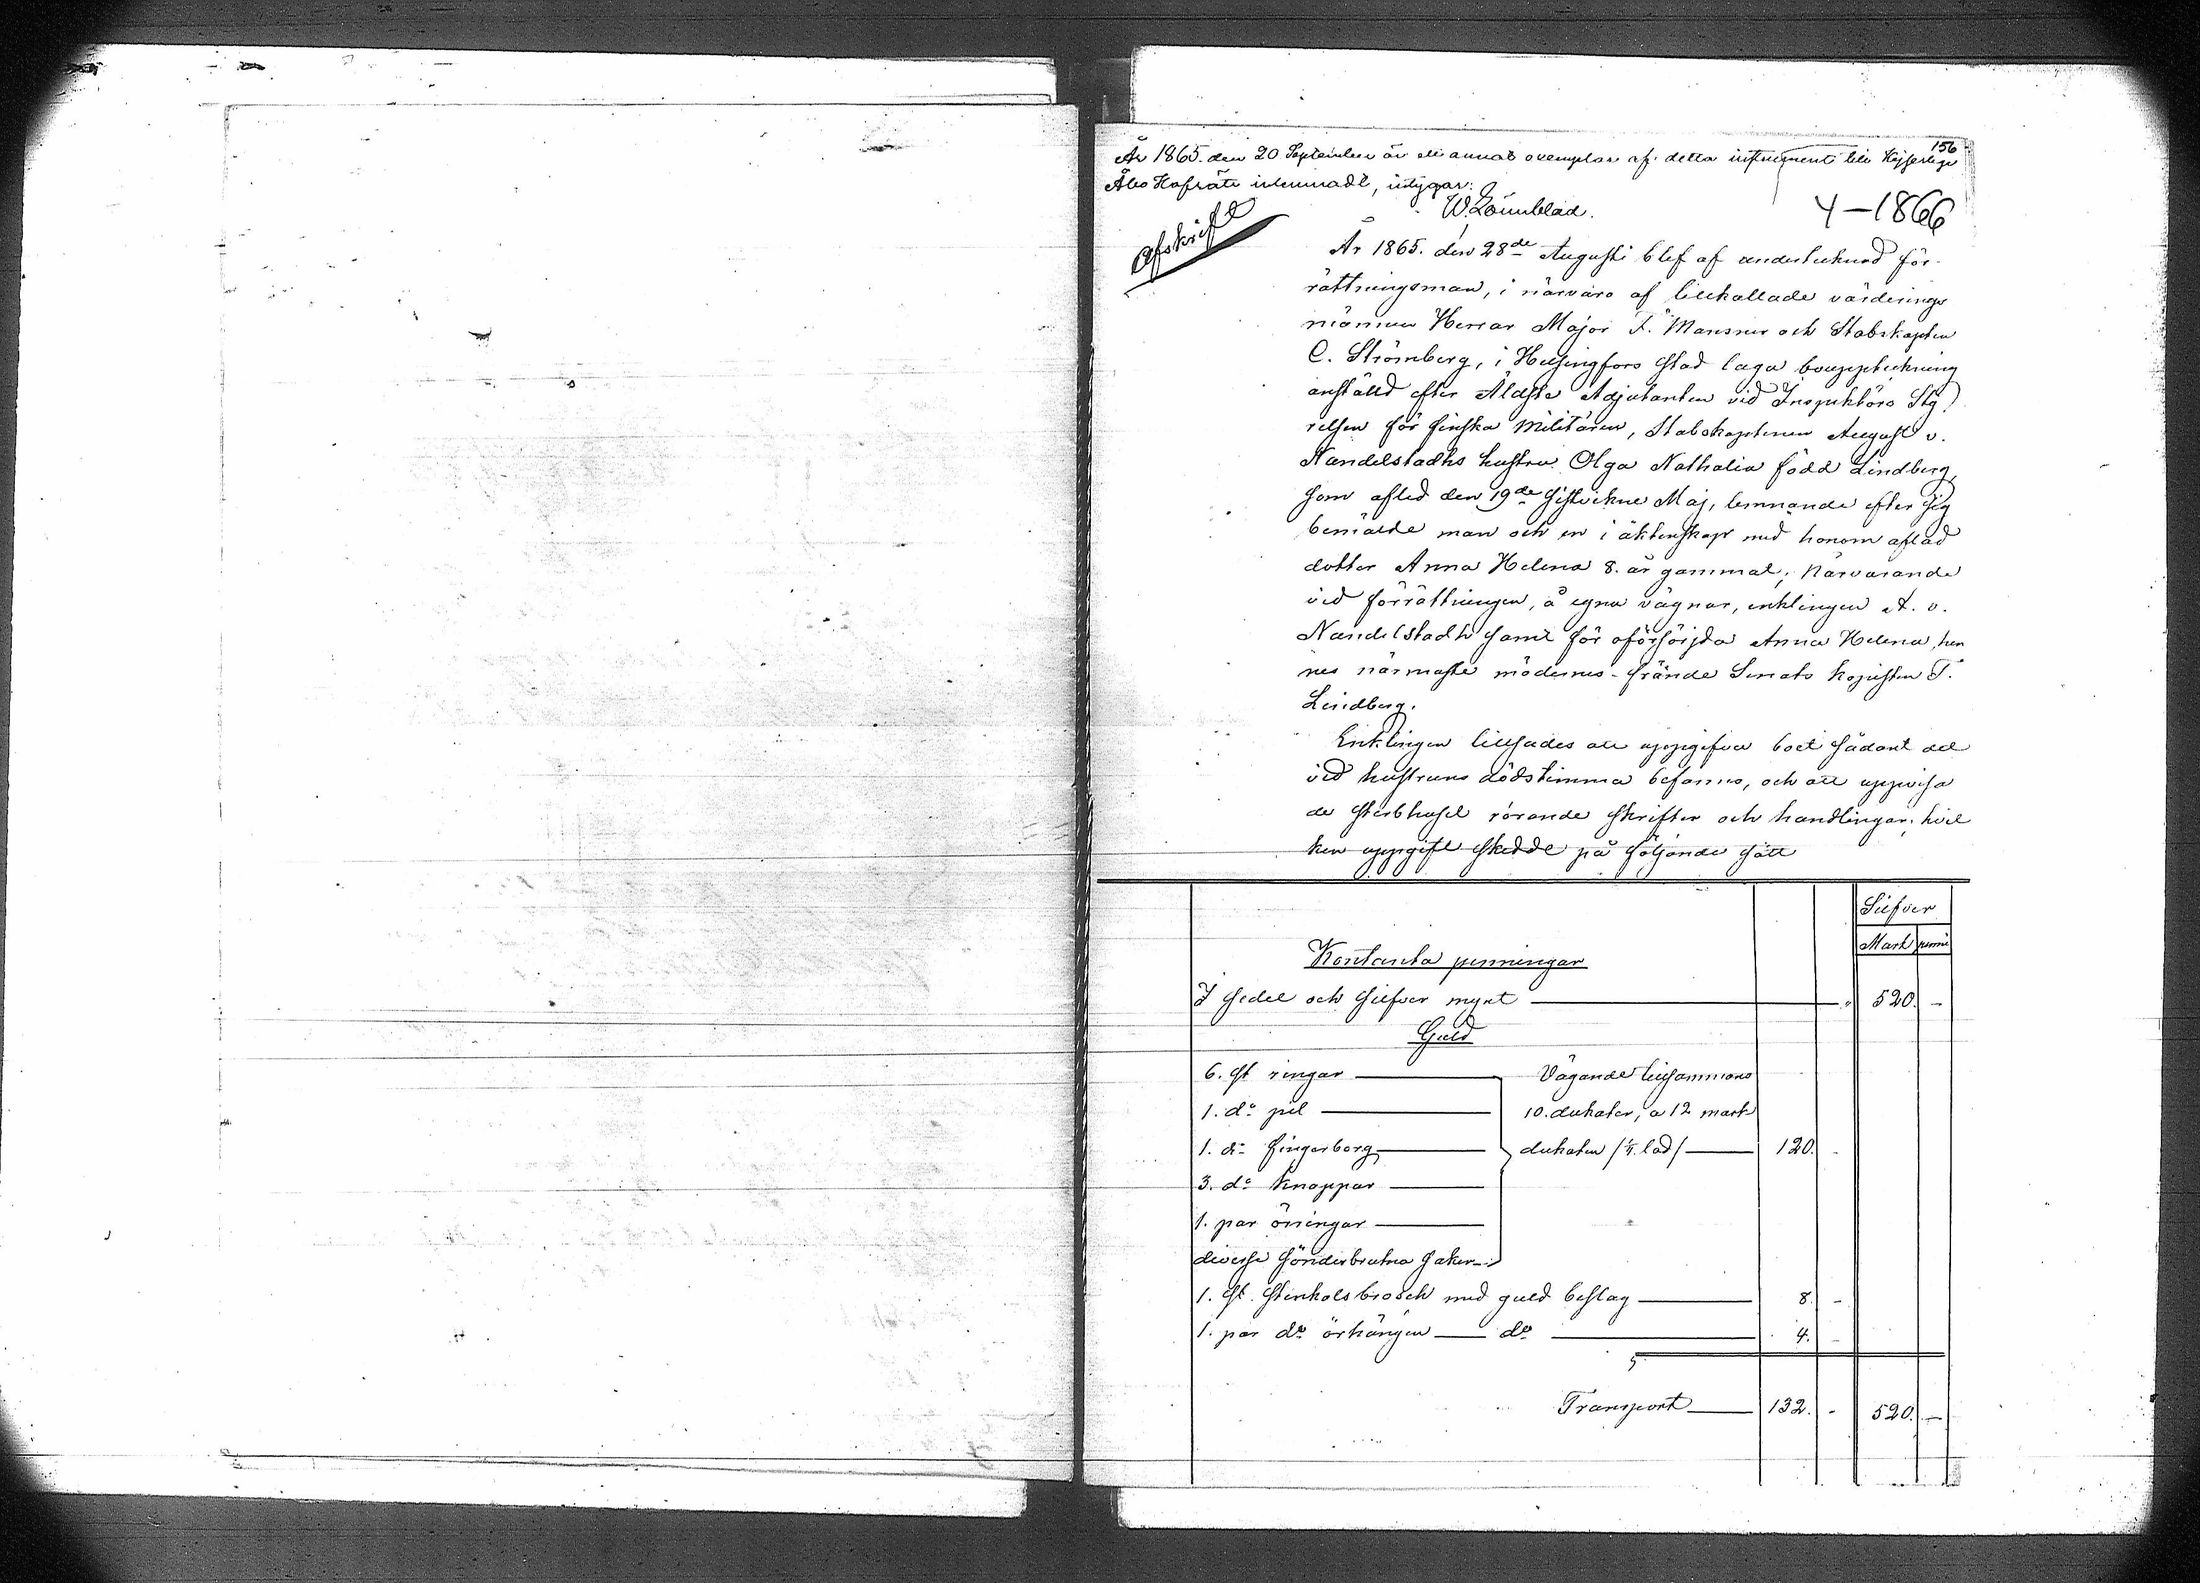 156
År 1865. den 20 September är ett annat exemplar af detta instrument till Kejserliga
Åbo Hofrätt inlemnadt, intygar:
W. Lönnblad.
4-1866
Afskrift
År 1865. den 28de Augusti blef af undertecknad för-
rättningsman, i närvaro af tillkallade värderings
männen Herrar Major F. Mansner och Stabskapten
C. Strömberg, i Helsingfors stad laga bouppteckning
anställd efter Äldste Adjutanten vid Inspektörs Sty
relsen för finska Militären, Stabskaptenen August v.
Nandelstadhs hustru Olga Nathalia född Lindberg,
som afled den 19de sistvikne Maj, lemnande efter sig
bemälde man och en i äktenskap med honom aflad
dotter Anna Helena 8. år gammal; närvarande
vid förrättningen, å egna vägnar, enklingen A. v.
Nandelstadh samt för oförsörjda Anna Helena, hen
nes närmaste mödernes-frände Senats kopisten F.
Lindberg.
Enklingen tillsades att uppgifva boet sådant det
vid hustruns dödstimma befanns, och att uppvisa
de sterbhuset rörande skrifter och handlingar; hvil
ken uppgift skedde på följande sätt
Silfver
Mark penni
Kontanta penningar
I sedel och silfver mynt — " 520. -
Guld
6. st ringar — Vägande tillsammans
1. do pil — 10. dukater, a 12 mark
1. do fingerborg — dukaten /¼ lod/ — 120. -
3. do knappar —
1. par örringar —
diverse sönderbrutna saker —
1. st. stenkolsbrosch med guld beslag — 8. -
1. par do örhängen — do — 4. -
Transport — 132. - 520. -